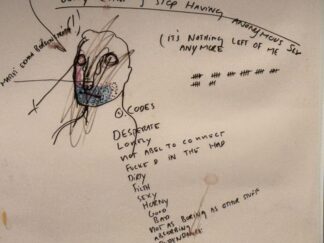 STOP HAVING ANONYMOUS SEX
(IT'S NOTHING LEFT OF ME
ANYMORE
CODES
DESPERATE
LONELY
NOT ABEL TO CONNECT
FUCKED IN THE HAD
DIRTY
FILTH
SEXY
HORNY
GOOD
BAD
NOT AS BORING AS OTHER STUFF
ABSORBING